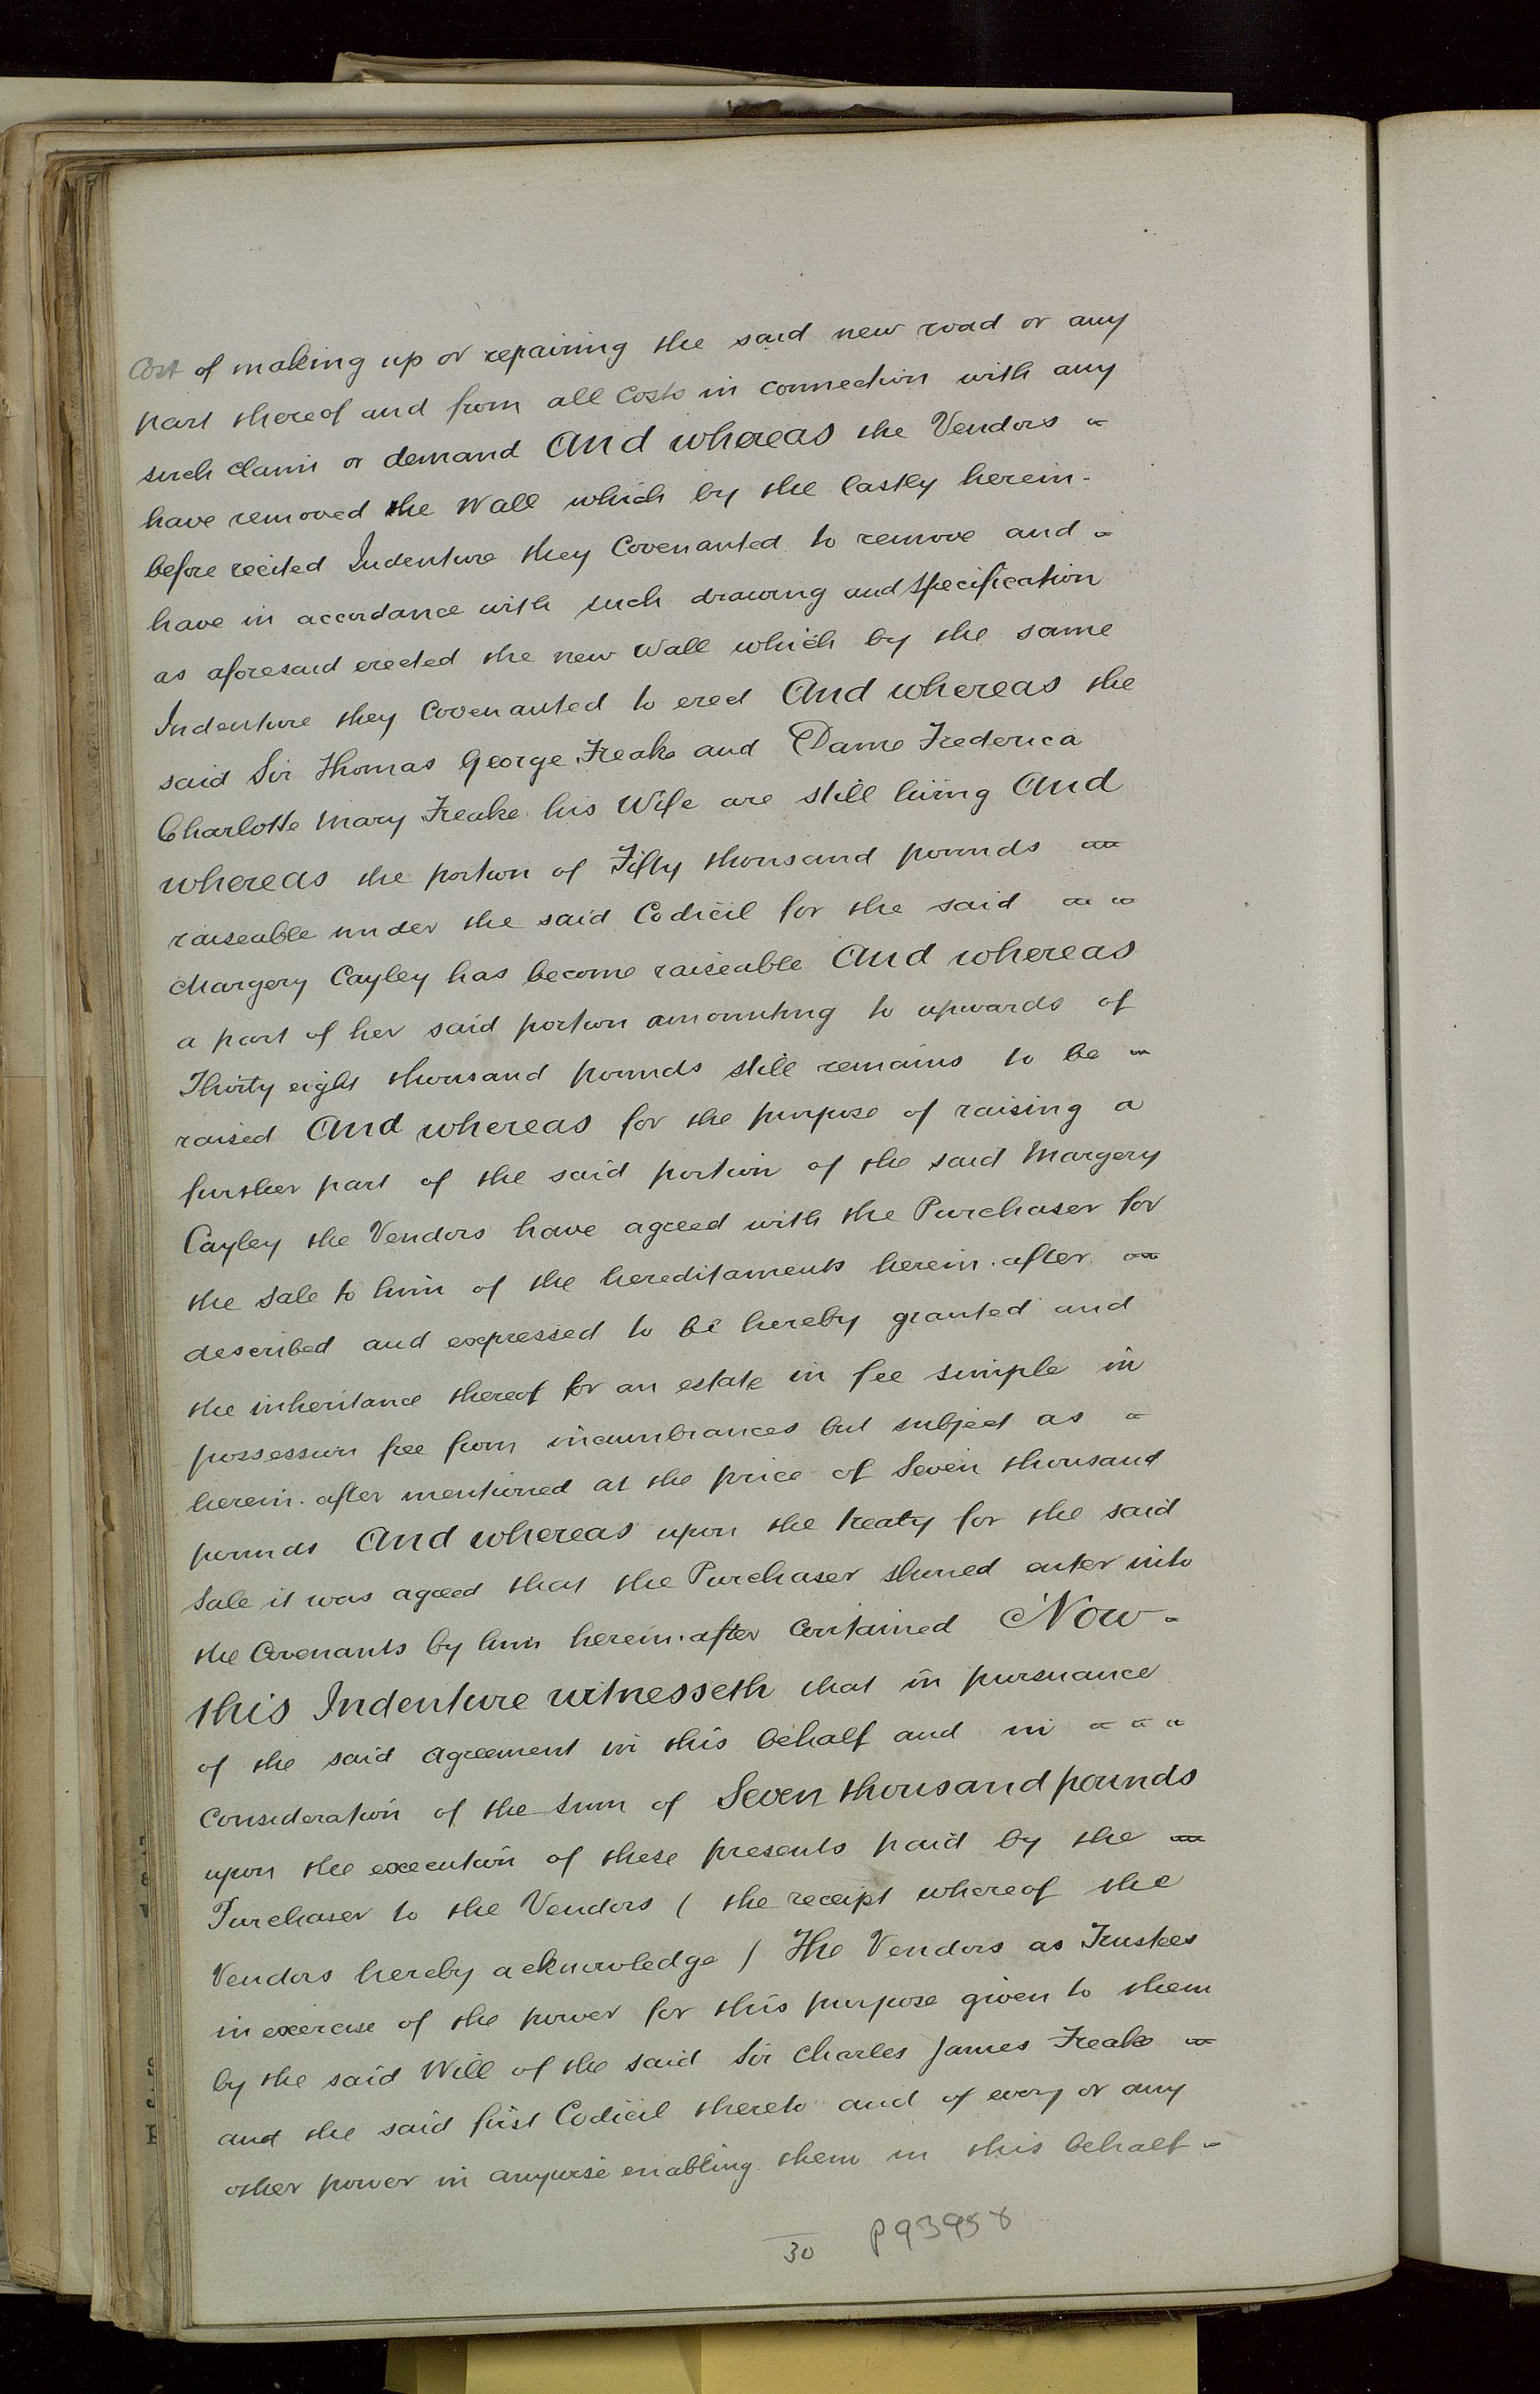 Cost of making up or repairing the said new road or any
part thereof and from all Costs in connection with any
such claim or demand And whereas the Vendors
have removed the Wall which by the lastly herein-
before recited Indenture they Covenanted to remove and
have in accordance with such drawing and specification
as aforesaid erected the new Wall which by the same
Indenture they Covenanted to erect And whereas the
said Sir Thomas George Freake and Dame Frederica
Charlotte Mary Freake his Wife are still living And
whereas the portion of Fifty thousand pounds
raiseable under the said Codicil for the said
Margery Cayley has become raiseable And whereas
a part of her said portion amounting to upwards of
Thirty eight thousand pounds still remains to be
raised And whereas for the purpose of raising a
further part of the said portion of the said Margery
Cayley the Vendors have agreed with the Purchaser for
the sale to him of the hereditaments herein.after
described and expressed to be hereby granted and
the inheritance thereof for an estate in fee simple in
possession free from incumbrances but subject as
herein.after mentioned at the price of Seven thousand
pounds And whereas upon the treaty for the said
Sale it was agreed that the Purchaser should enter into
the Covenants by him herein.after Contained Now
this Indenture witnesseth that in pursuance
of the said agreement in this behalf and in
Consideration of the sum of Seven thousand pounds
upon the execution of these presents paid by the
Purchaser to the Vendors ( the receipt whereof the
Vendors hereby acknowledge ) The Vendors as Trustees
in exercise of the power for this purpose given to them
by the said Will of the said Sir Charles James Freake
and the said first Codicil thereto and of every or any
other power in anywise enabling them in this behalf
30 P93958